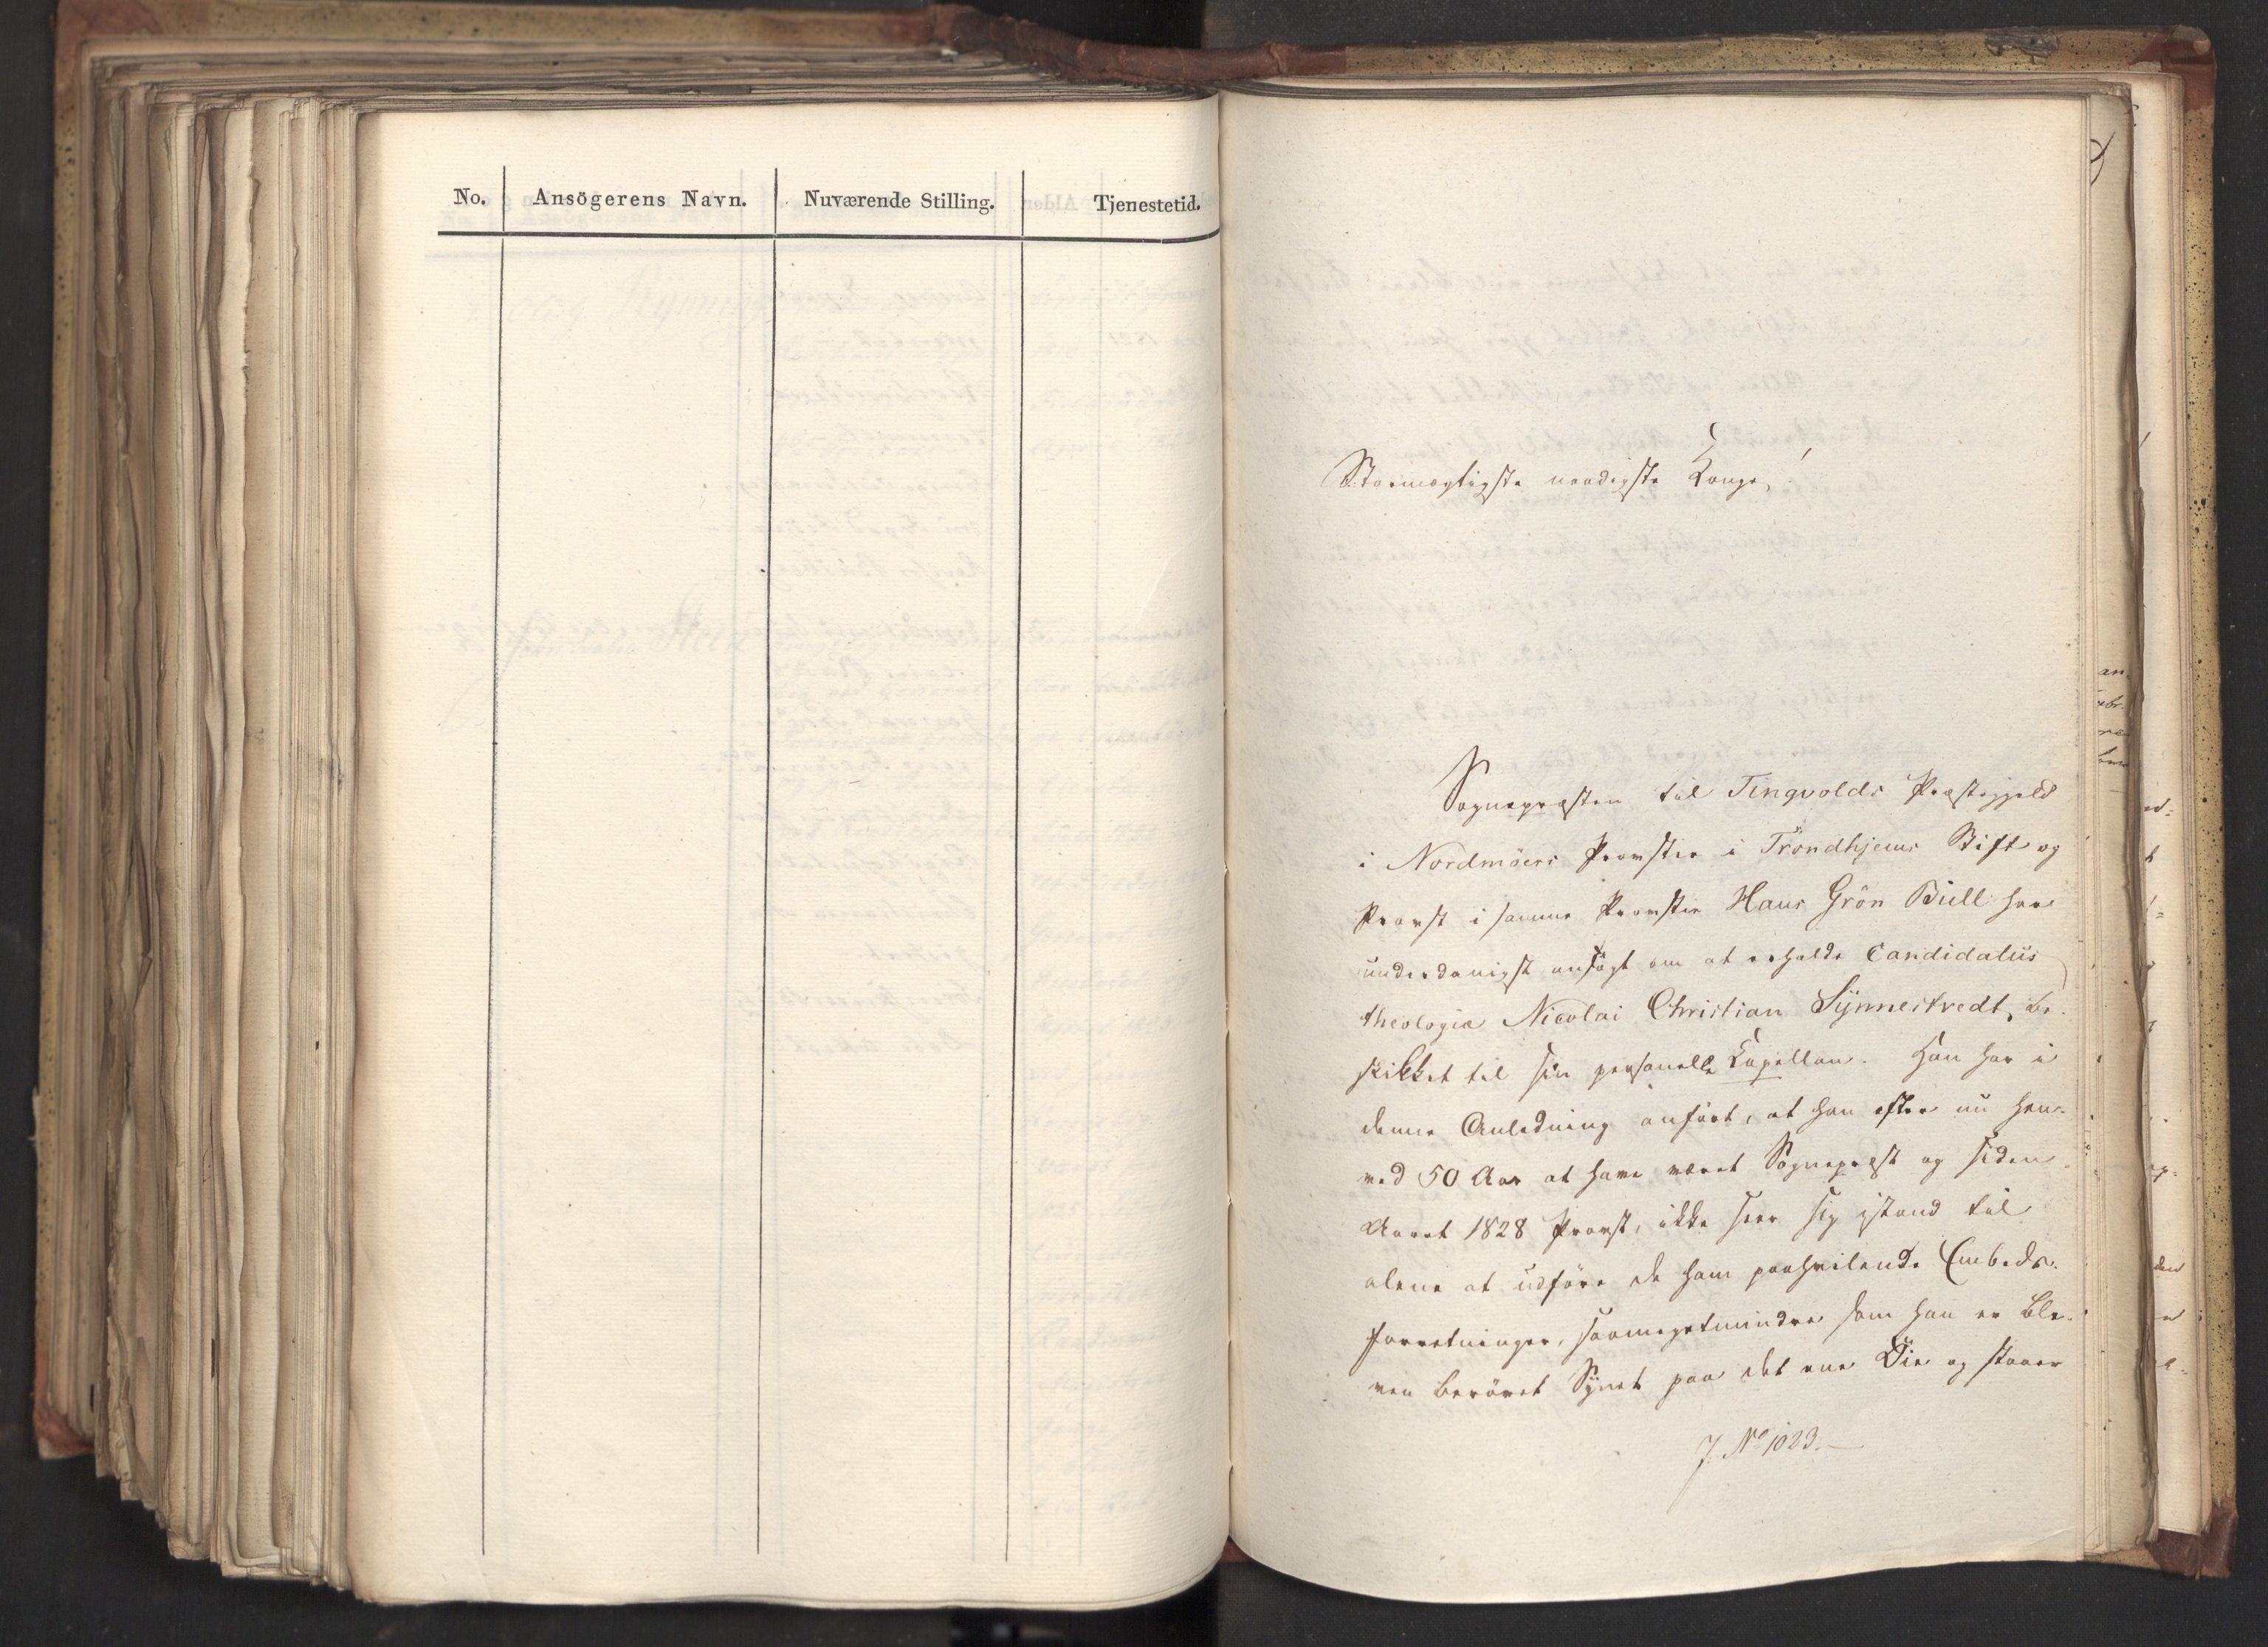 No. Ansögerens Navn. Nuværende Stilling. Tjenestetid.
Stormægtigste naadigste Konge!
Sognepræsten til Tingvolds Præstegjeld
i Nordmöers Provstie i Trondhjems Stift og
Provst i samme Provstie Hans Grön Bull har
underdanigst ansögt om at erholde Candidatus
theologiæ Nicolai Christian Synnestvedt, be-
skikket til sin personelle Kapellan. Han har i
denne Anledning anfört, at han efter nu hen-
ved 50 Aar at have været Sognepræst og siden
Aaret 1828 Provst, ikke seer sig istand til
alene at udföre de ham paahvilende Embeds-
forretninger, saameget mindre som han er ble-
ven berövet Synet paa det ene Öie og staaer
J. No 1023.—